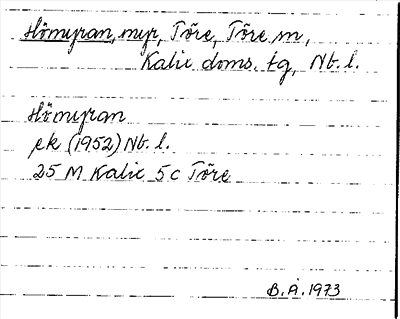 Hömyran, myr, Töre, Töre sn,
Kalix doms. tg, Nb. l.
Hömyran
ek (1952) Nb. l.
25 M Kalix 5c Töre
B.Å. 1973